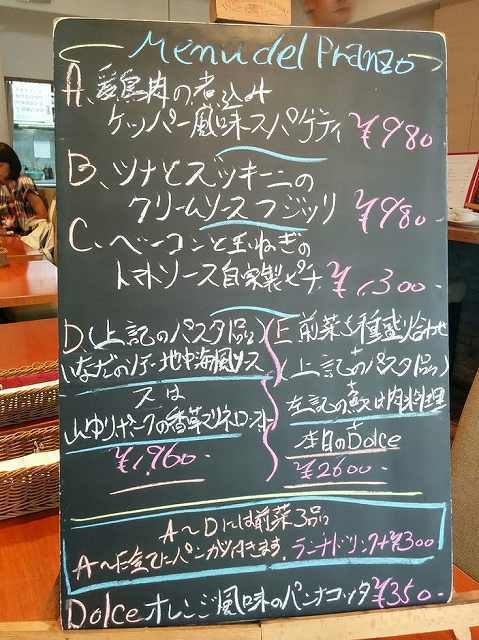 Menu del Pranzo
A、愛鳥肉の煮込み
ケッパー風味スパゲティ ¥980
B、ツナとズッキーニの
クリームソース フジッリ ¥980-
C、ベーコンと玉ねぎの
トマトソース自家製ピチ ¥1,300-
D(上記のパスタ1品)
いなだのソテー地中海風ソース
又は
山ゆりポークの香草マリネロースト
¥1,960-
E 前菜5種盛り合わせ
(上記のパスタ1品)
左記の魚又は肉料理
本日のDolce
¥2600-
A〜Dには前菜3品
A〜E全てにパンが付きます。ランチドリンク+¥300
Dolce オレンジ風味のパンナコッタ ¥350-